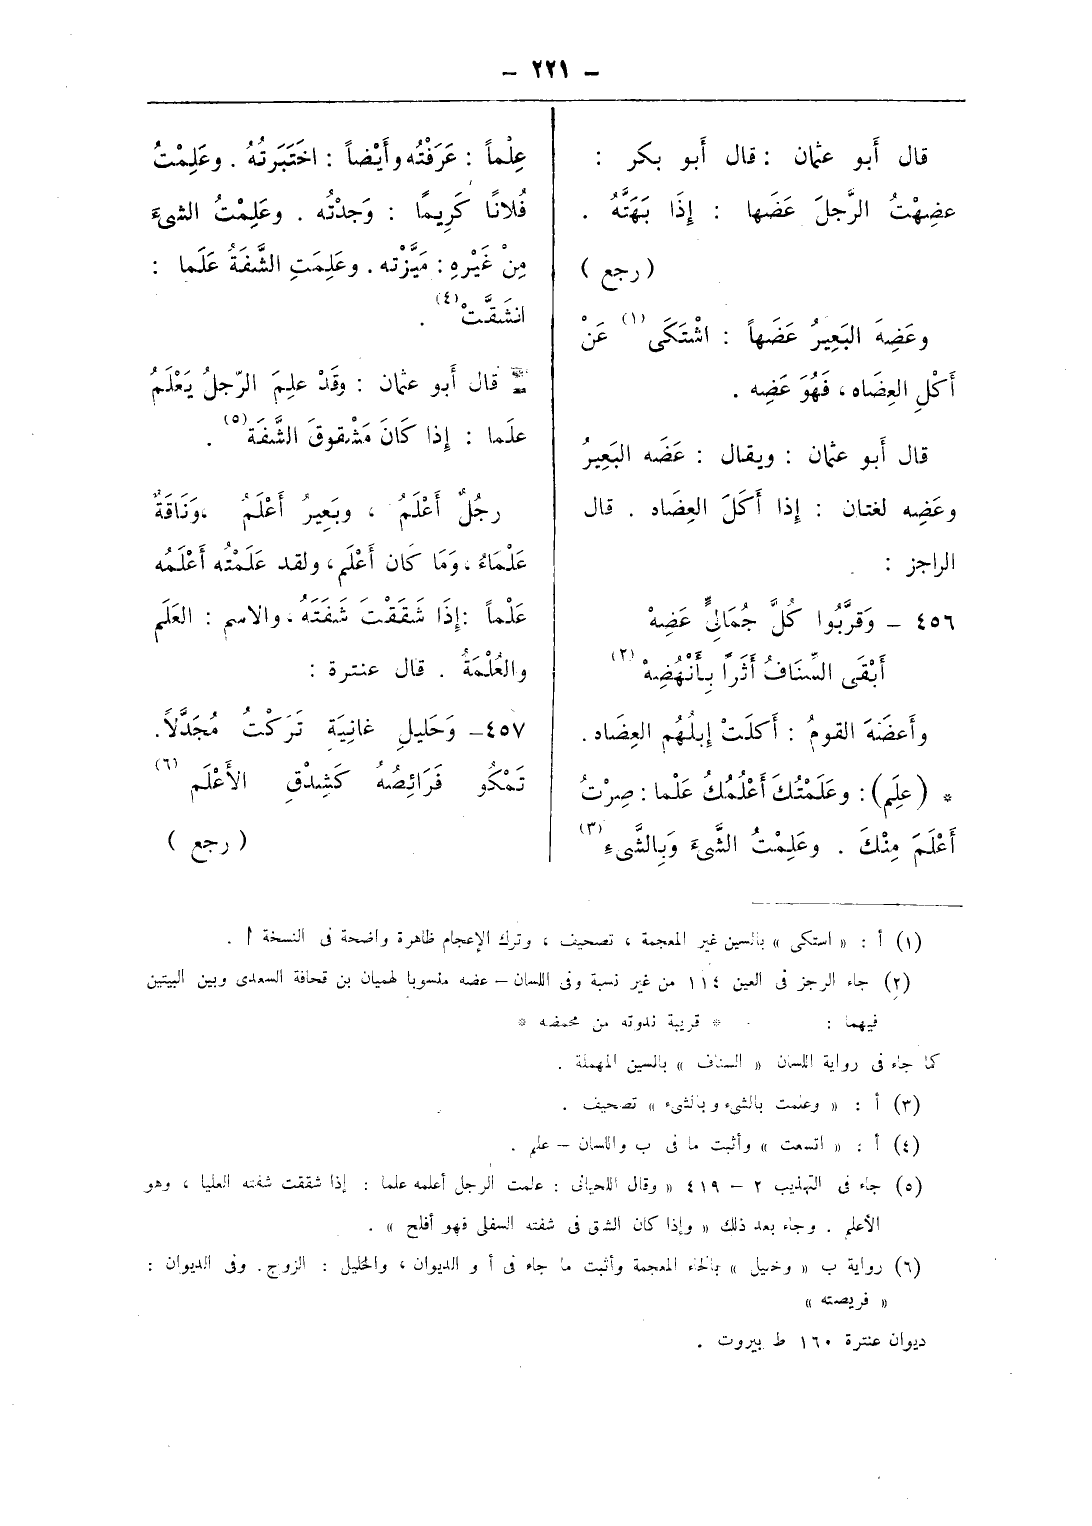 – ٢٢١ –
قال أَبو عثمان : قال أَبو بكر :
عضِهْتُ الرَّجلَ عَضَها : إِذَا بَهَتَّهُ .
( رجع )
وعَضِهَ البَعِيرُ عَضَهاً : اشْتَكَى (١) عَنْ
أَكْلِ العِضَاه ، فَهُوَ عَضِه .
قال أَبو عثمان : ويقال : عَضَه البَعِيرُ
وعَضِه لغتان : إِذا أَكَلَ العِضَاه . قال
الراجز :
٤٥٦ – وَقَرَّبُوا كُلَّ جُمَالِىٍّ عَضِهْ
أَبْقَى السِّنَافُ أَثَراً بِأَنْهُضِهْ (٢)
وأَعضَهَ القومُ : أَكلَتْ إِبلُهُم العِضَاه .
* ( علِم ) : وعَلَمْتُكَ أَعْلُمُكُ عَلْما : صِرْتُ
أَعْلَمَ مِنْكَ . وعَلِمْتُ الشَّىءَ وَبِالشَّىءِ (٣)
عِلْماً : عَرَفْتُه وأَيْضاً : اخْتَبَرتُهُ . وعَلِمْتُ
فُلانًا كَرِيمًا : وَجدْتُه . وعَلِمْتُ الشىءَ
مِنْ غَيْرِهِ : مَيَّزْته . وعَلِمَتِ الشَّفَةُ عَلَما :
انشَقَّتْ (٤) .
قال أَبو عثمان : وقَدْ علِمَ الرّجلُ يَعْلَمُ
علَما : إِذا كَانَ مَشْقوقَ الشَّفَة (٥) .
رجُلٌ أَعْلَمُ ، وبَعِيرُ أَعْلَمُ ، وَنَاقَةٌ
عَلْمَاءُ ، وَمَا كَان أَعْلَم ، ولقد عَلَمْتُه أَعْلمُه
عَلْماً : إِذَا شَقَقْتَ شَفَتَهُ ، والاسم : العَلَم
والعُلْمَةُ . قال عنترة :
٤٥٧– وَحَلِيلِ غانِيَةٍ تَرَكْتُ مُجَدَّلاً .
تَمْكُو فَرَائِصُهُ كَشِدْقِ الأَعْلَم (٦)
( رجع )
(١) أ : « استكى » بالسين غير المعجمة ، تصحيف ، وترك الإعجام ظاهرة واضحة فى النسخة أ .
(٢) جاء الرجز فى العين ١١٤ من غير نسبة وفى اللسان – عضه منسوبا لهميان بن قحافة السعدى وبين البيتين
فيهما : * قريبة ندوته من محمضه *
كما جاء فى رواية اللسان « السناف » بالسين المهملة .
(٣) أ : « وعلمت بالشىء وبالشىء » تصحيف .
(٤) أ : « اتسعت » وأثبت ما فى ب واللسان – علم .
(٥) جاء فى التهذيب ٢ – ٤١٩ « وقال اللحيانى : علمت الرجل أعلمه علما : إذا شققت شفته العليا ، وهو
الأعلم . وجاء بعد ذلك « وإذا كان الشق فى شفته السفلى فهو أفلح » .
(٦) رواية ب « وخليل » بالخاء المعجمة وأثبت ما جاء فى أ و الديوان ، والحليل : الزوج . وفى الديوان :
« فريصته »
ديوان عنترة ١٦٠ ط بيروت .